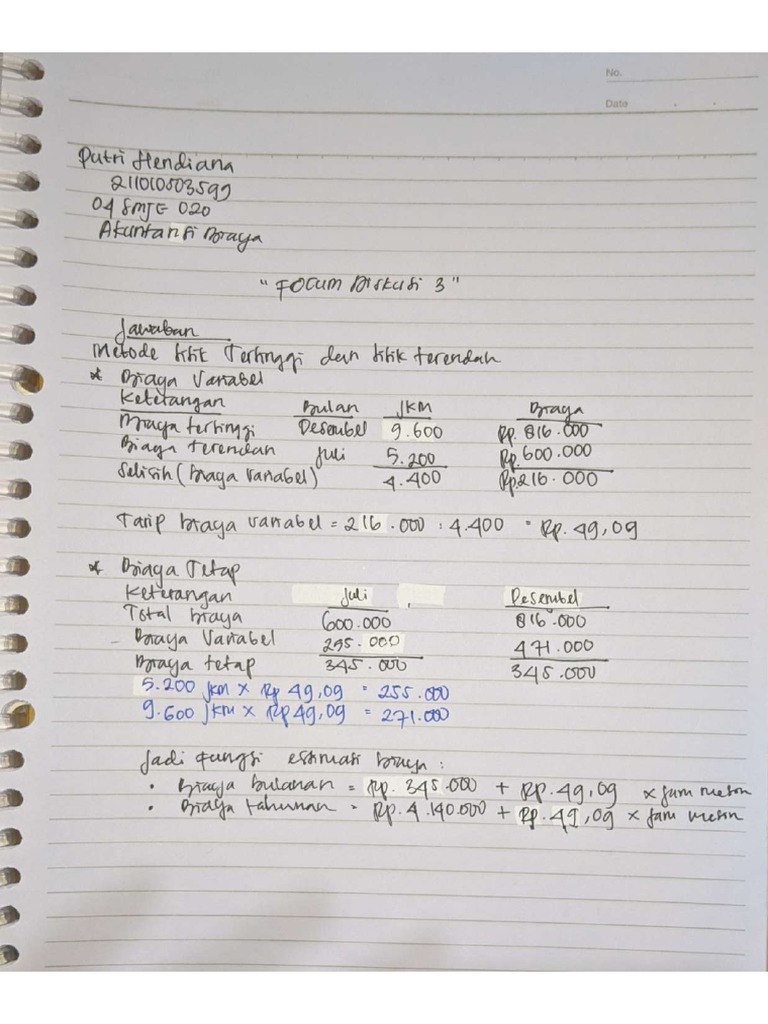 No.
Date
Putri Hendiana
211010503599
04 SMJE 020
Akuntansi Biaya
"FOCUM DISKUSI 3"
Jawaban
Metode titik Tertinggi dan titik terendah
* Biaya Variabel
Keterangan Bulan JKM Biaya
Biaya tertinggi Desember 9.600 Rp. 816.000
Biaya terendah Juli 5.200 Rp. 600.000
Selisih (biaya variabel) 4.400 Rp 216.000
Tarip biaya variabel = 216.000 : 4.400 = Rp. 49,09
* Biaya Tetap
Keterangan Juli Desember
Total biaya 600.000 816.000
- Biaya Variabel 295.000 471.000
Biaya tetap 345.000 345.000
5.200 JKM x Rp 49,09 = 255.000
9.600 JKM x Rp 49,09 = 271.000
Jadi Fungsi estimasi biaya :
• Biaya bulanan = Rp. 345.000 + Rp. 49,09 x jam mesin
• Biaya tahunan = Rp. 4.140.000 + Rp. 49,09 x jam mesin